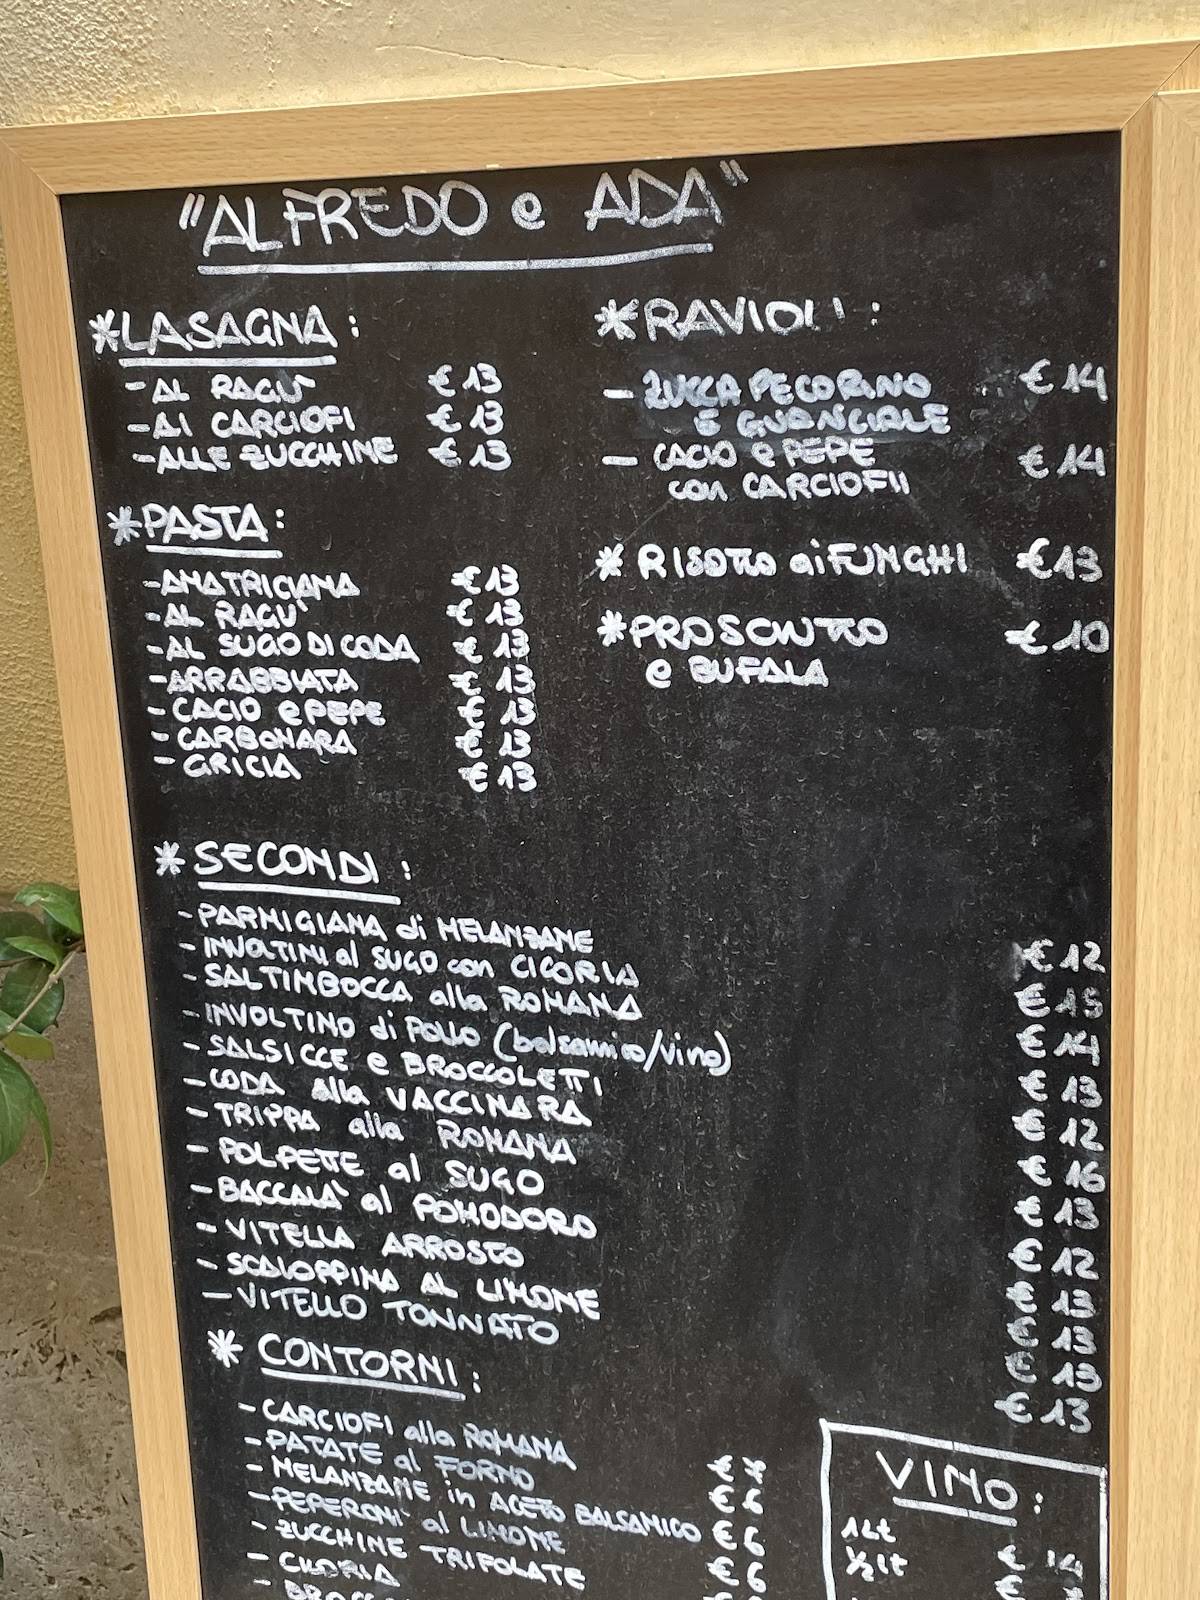 "ALFREDO e ADA"
*LASAGNA:
- AL RAGU` € 13
- AI CARCIOFI € 13
- ALLE ZUCCHINE € 13
*PASTA:
- AMATRICIANA € 13
- AL RAGU` € 13
- AL SUGO DI CODA € 13
- ARRABBIATA € 13
- CACIO e PEPE € 13
- CARBONARA € 13
- GRICIA € 13
*RAVIOLI:
- ZUCCA PECORINO € 14
E GUANCIALE
- CACIO e PEPE € 14
con CARCIOFI
* RISOTTO ai FUNGHI € 13
*PROSCIUTTO € 10
e BUFALA
* SECONDI:
- PARMIGIANA di MELANZANE € 12
- INVOLTINI al SUGO con CICORIA € 15
- SALTIMBOCCA alla ROMANA € 14
- INVOLTINO di POLLO (balsamico/vino) € 13
- SALSICCE e BROCCOLETTI € 12
- CODA alla VACCINARA € 16
- TRIPPA alla ROMANA € 13
- POLPETTE al SUGO € 12
- BACCALA` al POMODORO € 13
- VITELLA ARROSTO € 13
- SCALOPPINA AL LIMONE € 13
- VITELLO TONNATO € 13
* CONTORNI:
- CARCIOFI alla ROMANA
- PATATE al FORNO
- MELANZANE in ACETO BALSAMICO € 6
- PEPERONI al LIMONE
- ZUCCHINE TRIFOLATE € 6
- CICORIA
VINO:
1 Lt
1/2 lt